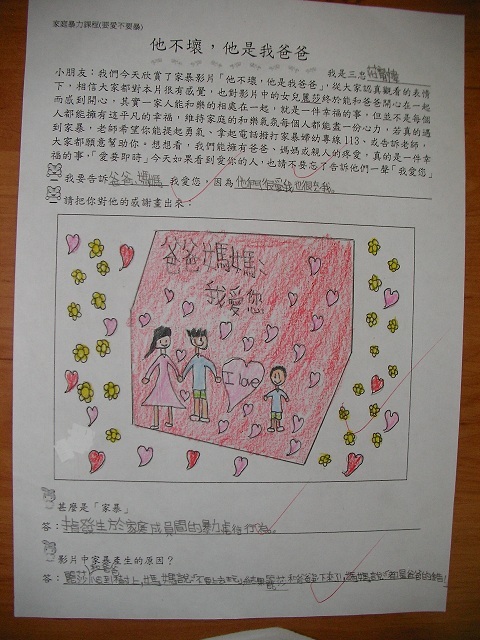 家庭暴力課程(要愛不要暴)
他不壞，他是我爸爸
我是三忠
小朋友：我們今天欣賞了家暴影片「他不壞，他是我爸爸」，從大家認真觀看的表情
下，相信大家都對本片很有感覺，也對影片中的女兒麗莎終於能和爸爸開心在一起
而感到開心，其實一家人能和樂的相處在一起，就是一件幸福的事，但並不是每個
人都能擁有這平凡的幸福，維持家庭的和樂氣氛每個人都能盡一份心力，若真的遇
到家暴，老師希望你能提起勇氣、拿起電話撥打家暴婦幼專線 113、或告訴老師，
大家都願意幫助你，想想看，我們能擁有爸爸、媽媽或親人的疼愛，真的是一件幸
福的事，「愛要即時」今天如果看到愛你的人，也請不要忘了告訴他們一聲「我愛您」
我要告訴爸爸、媽媽，我愛您，因為他們很愛我也很
請把你對他的感謝畫出來：
爸爸媽媽：
我愛你
I love
甚麼是「家暴」
答：指發生於家庭成員間的暴力虐待行為。
影片中家暴產生的原因？
答：麗莎爬到樹上，媽媽說：「不要上去玩」結果麗莎和爸爸